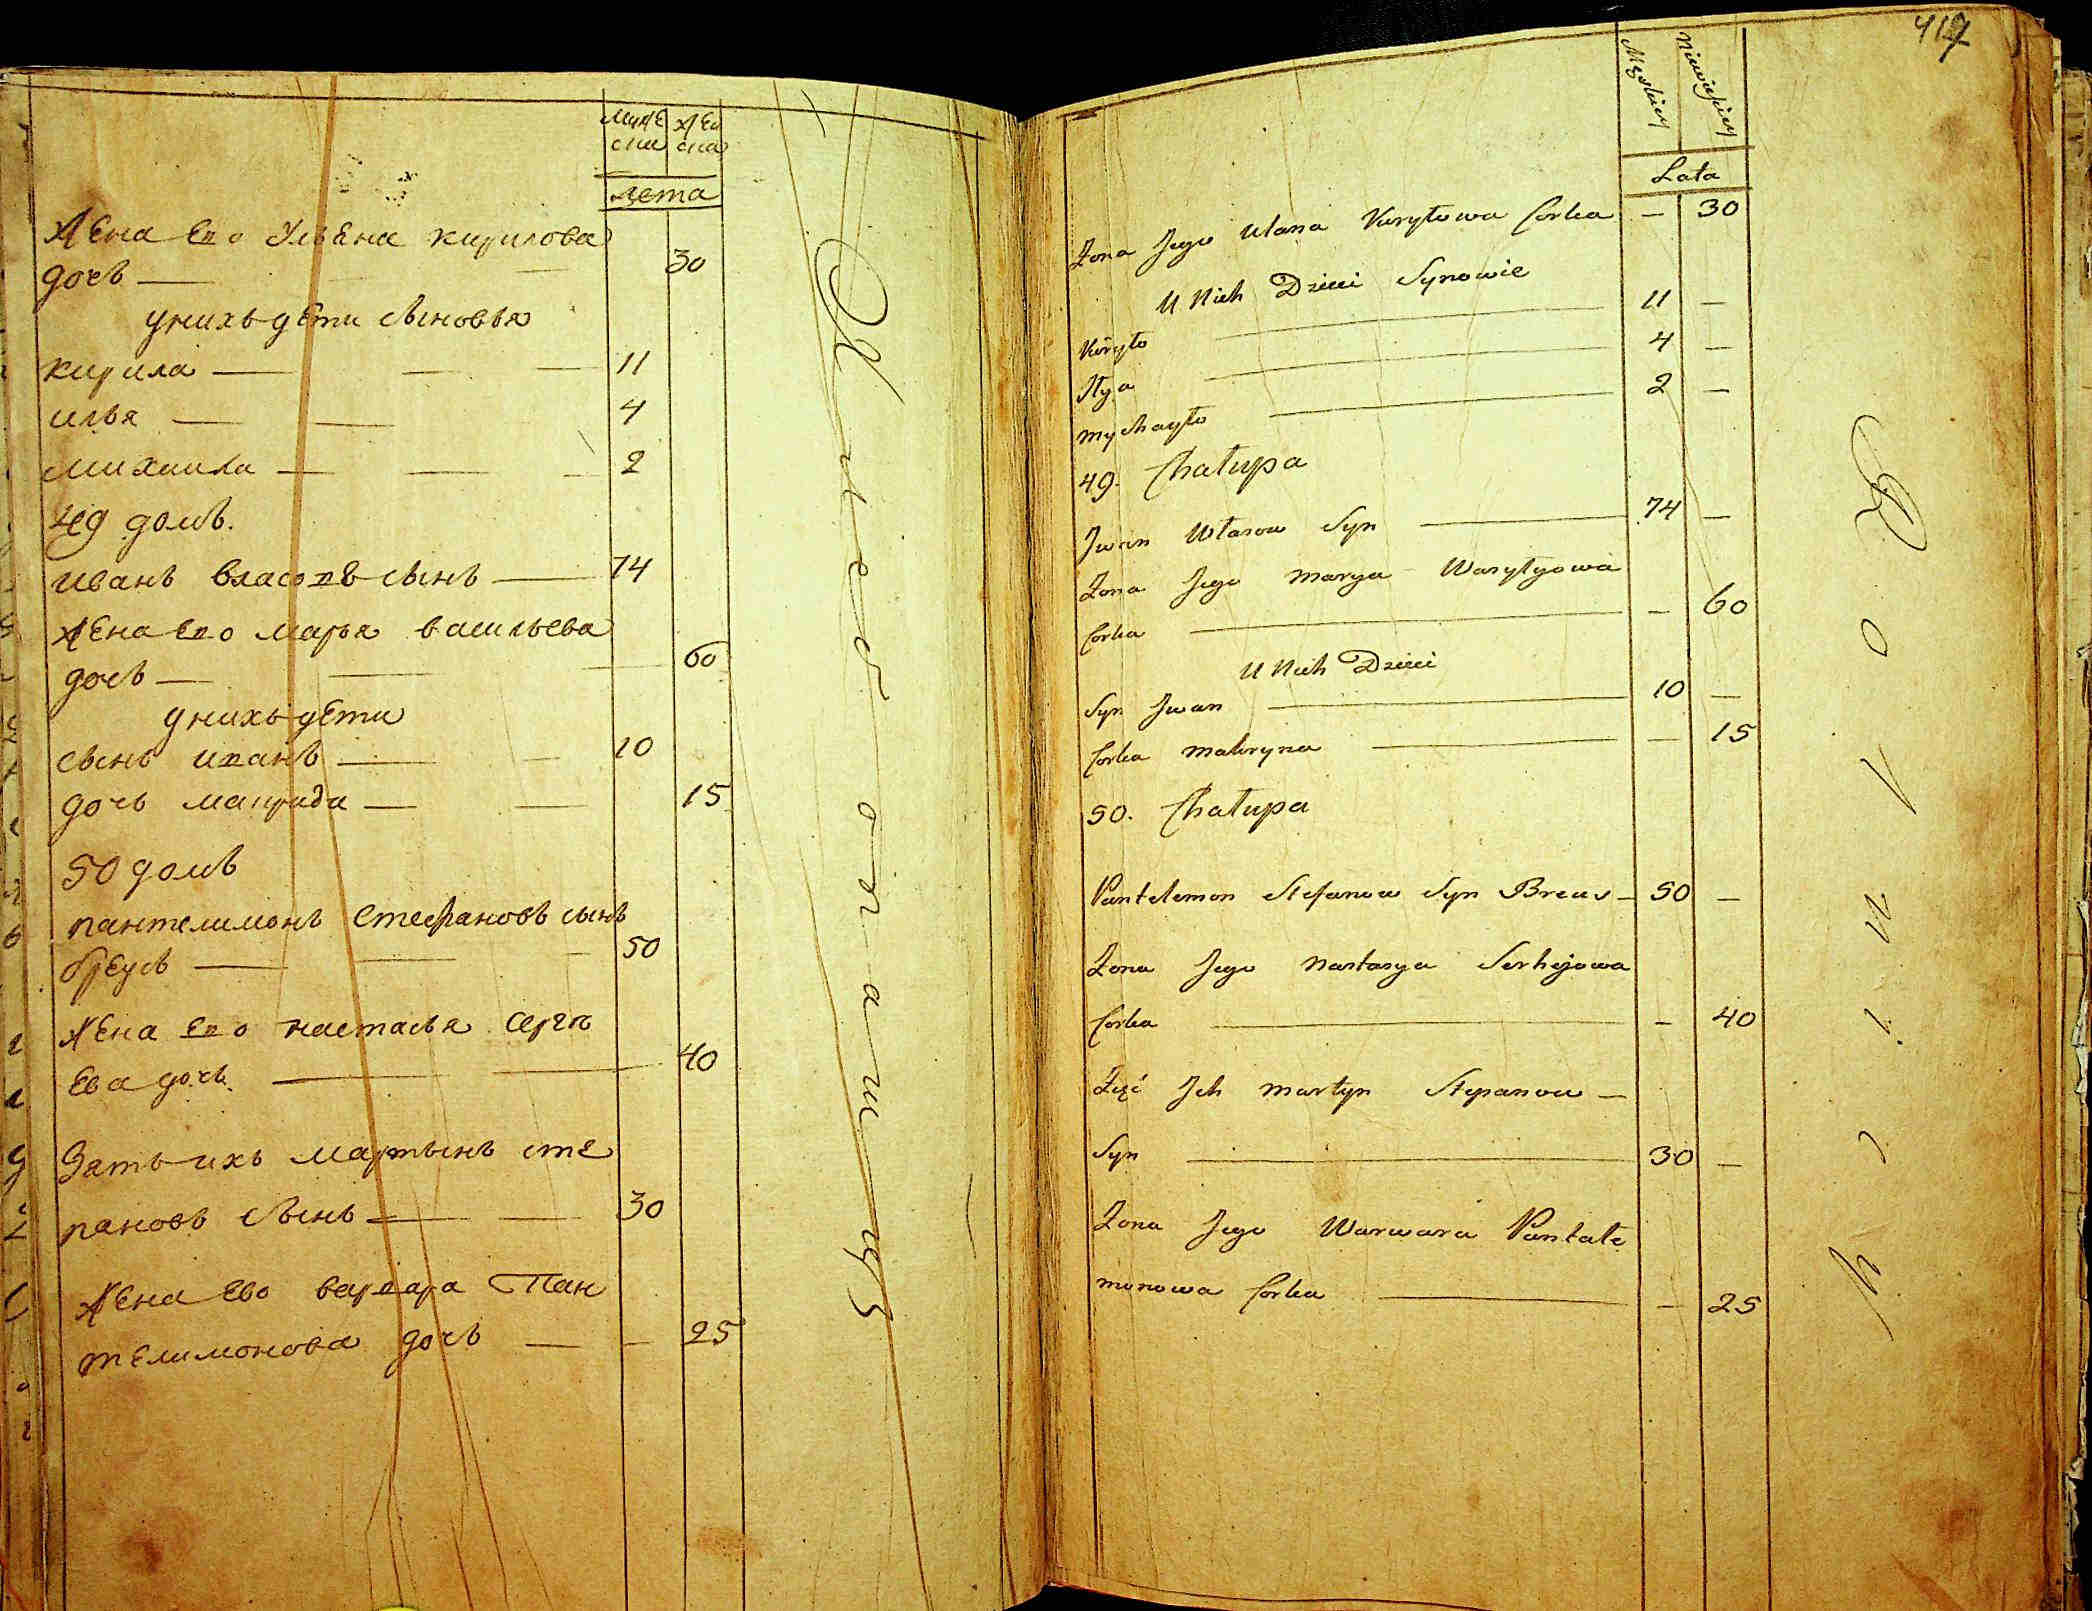 муже
ски
жен
ска
лета
жена ево ульяна кирилова
дочь — 30
у нихъ дети сыновья
кирила — 11
илья — 4
михаила — 2
49 домъ.
иванъ власовъ сынъ — 74
жена ево марья васильева
дочь — 60
у нихъ дети
сынъ иванъ — 10
дочь макрида — 15
50 домъ
пантелимонъ стефановъ сынъ
бреусъ — 50
жена ево настасья серге
ева дочь — 40
зять ихъ мартынъ сте
пановъ сынъ — 30
жена ево варвара Пан
телимонова дочь — 25
417
Męzkiey
Niewieskiey
Lata
Zona Jego Ulana Kuryłowa Corka — 30
U Nich Dzieci Synowie
Kuryło — 11 —
Ilya — 4 —
Mychayło — 2 —
49. Chałupa
Jwan Własow Syn — 74 —
Zona Jego Marya Wasylyowa
Corka — 60
U Nich Dzieci
Syn Jwan — 10 —
Corka Makryna — 15
50. Chałupa
Pantelemon Stefanow Syn Breus — 50 —
Zona Jego Nastasya Serhejowa
Corka — 40
Zięć Jch Martyn Stepanow —
Syn — 30 —
Zona Jego Warwara Pantale
monowa Corka — 25